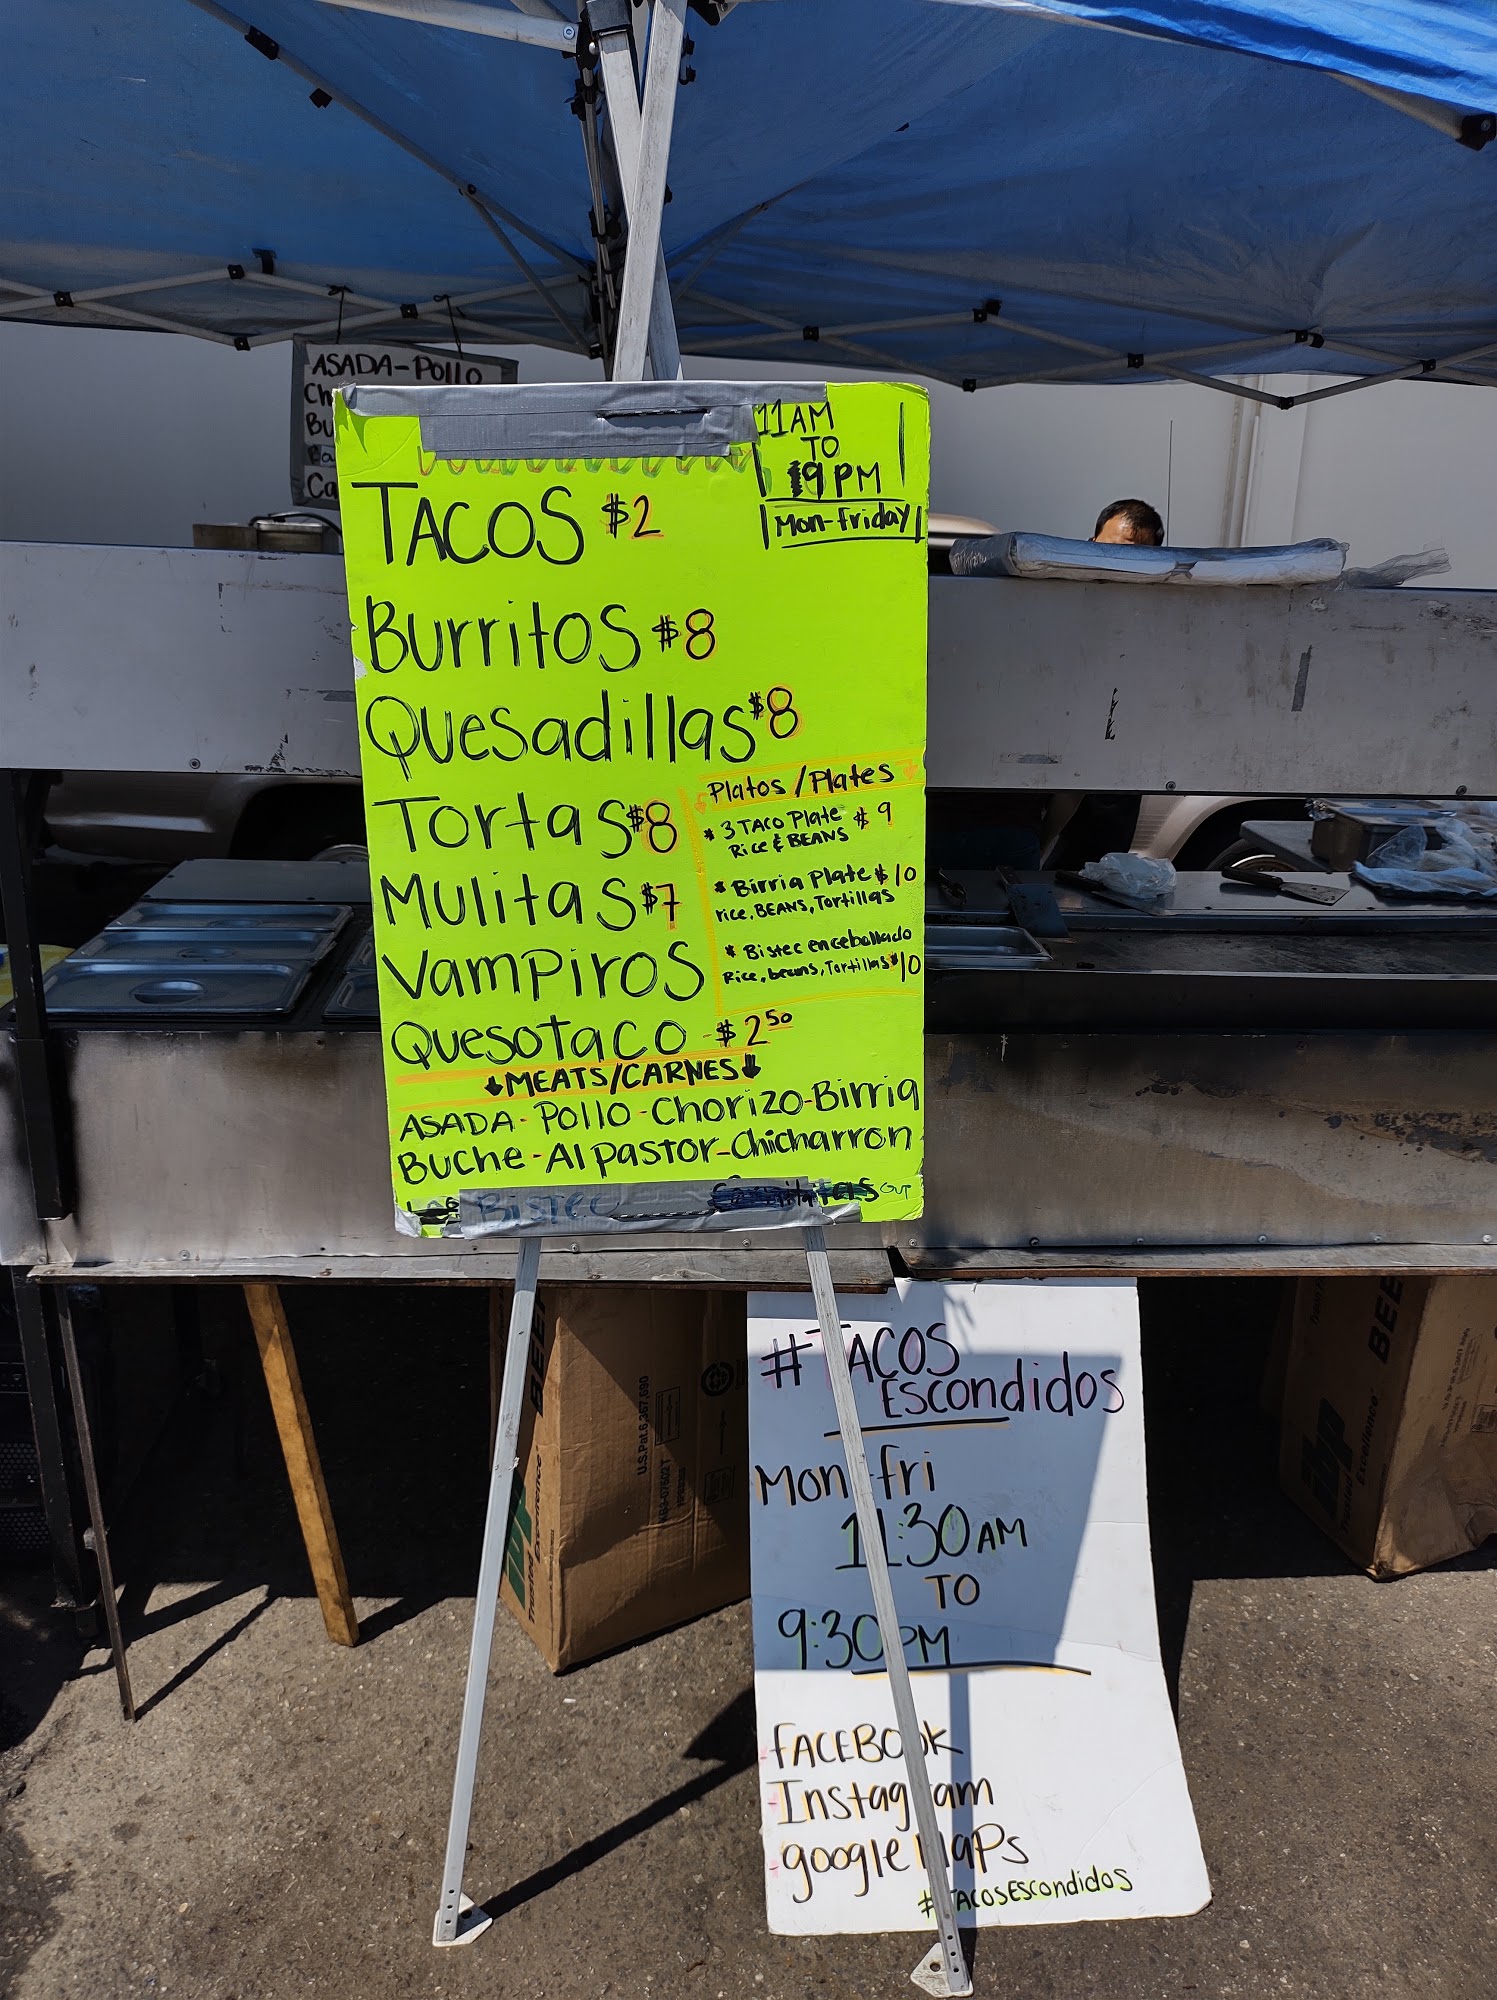 ASADA-Pollo
Ch
Bu
Ca
11AM
TO
9PM
Mon-Friday
TACOS $2
Burritos $8
Quesadillas $8
Tortas $8
Mulitas $7
Vampiros
Quesotaco - $2.50
Platos/Plates
* 3 TACO Plate $9
Rice & BEANS
* Birria Plate $10
rice, BEANS, Tortillas
* Bistec encebollado
Rice, beans, Tortillas $10
MEATS/CARNES
ASADA-Pollo-Chorizo-Birria
Buche-Al pastor-Chicharron
Bistec
OUT
#TACOS
Escondidos
Mon-fri
11:30AM
TO
9:30PM
-FACEBOOK
-Instagram
-google MaPs
#TACOSEscondidos
BEEF
U.S.Pat.6,367,690
ibp
Trusted Excellence
BEE
ibp
Trusted Excellence